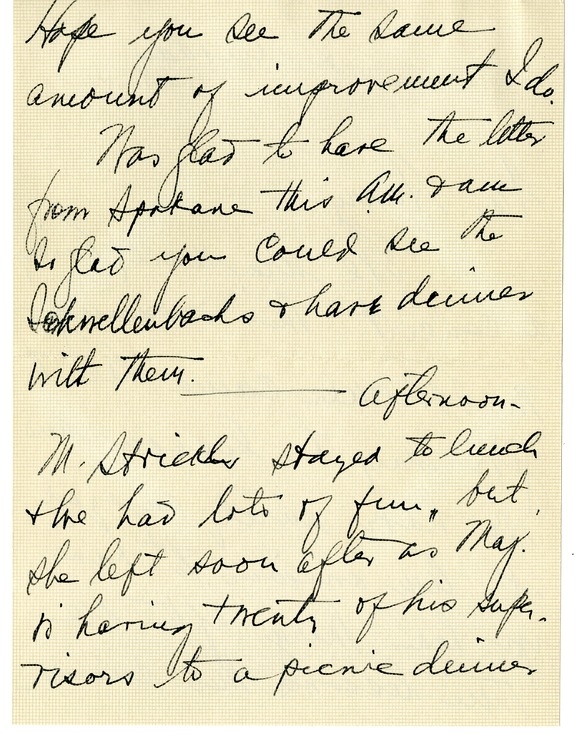 Hope you see the same
amount of improvement I do.
Was glad to have the letter
from Spokane this A.M. & am
so glad you could see the
Schwellenbachs & have dinner
with them. ———— Afternoon-
M. Strickler stayed to lunch
& we had lots of fun, but
she left soon after as Maj.
is having twenty of his super-
visors to a picnic dinner